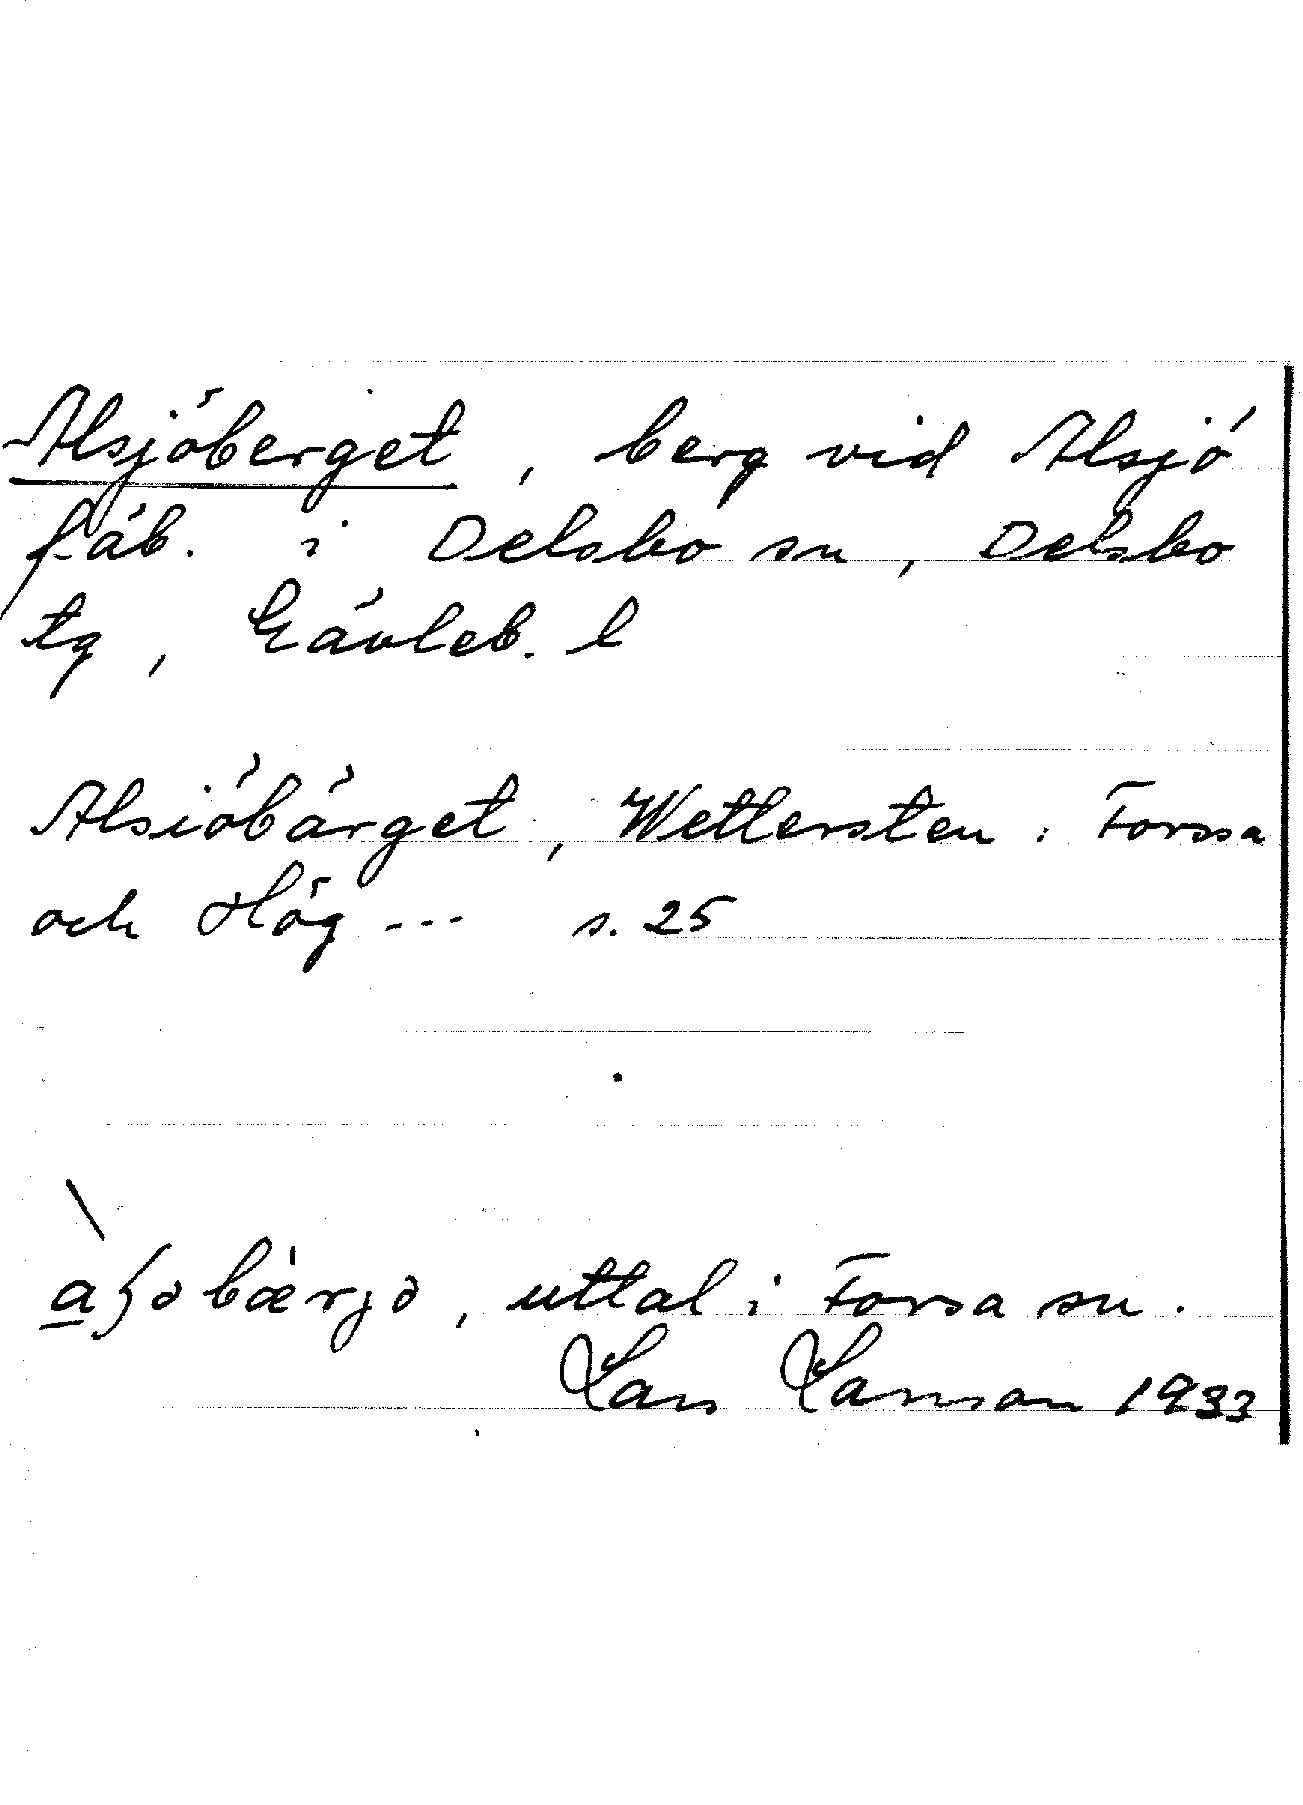 Alsjöberget, berg vid Alsjö
fäb. i Delsbo sn, Delsbo
tg, Gävleb. l
Alsiöbärget, Wettersten: Forssa
och Hög --- s. 25
uttal i Forsa sn.
Lars Larsson 1933